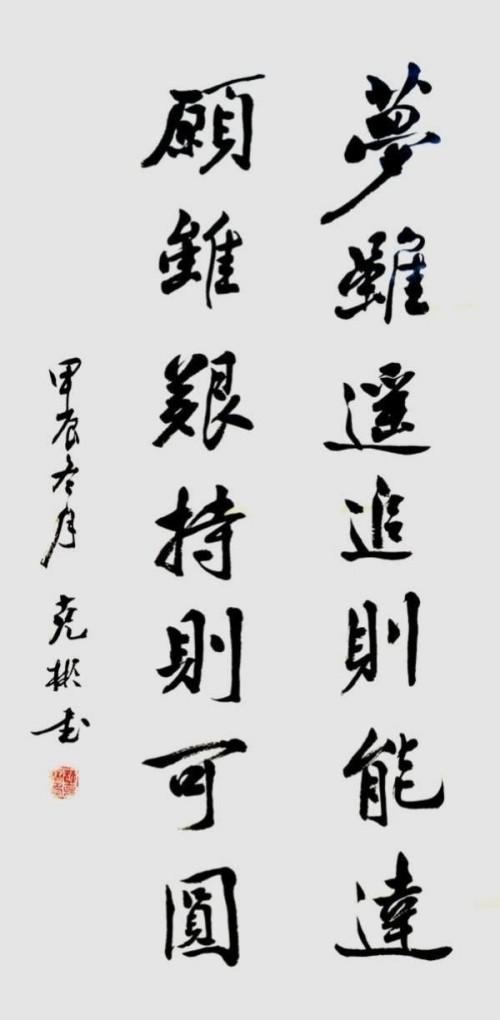 夢雖遥追則能達
願雖艱持則可圓
甲辰冬月 堯彬书